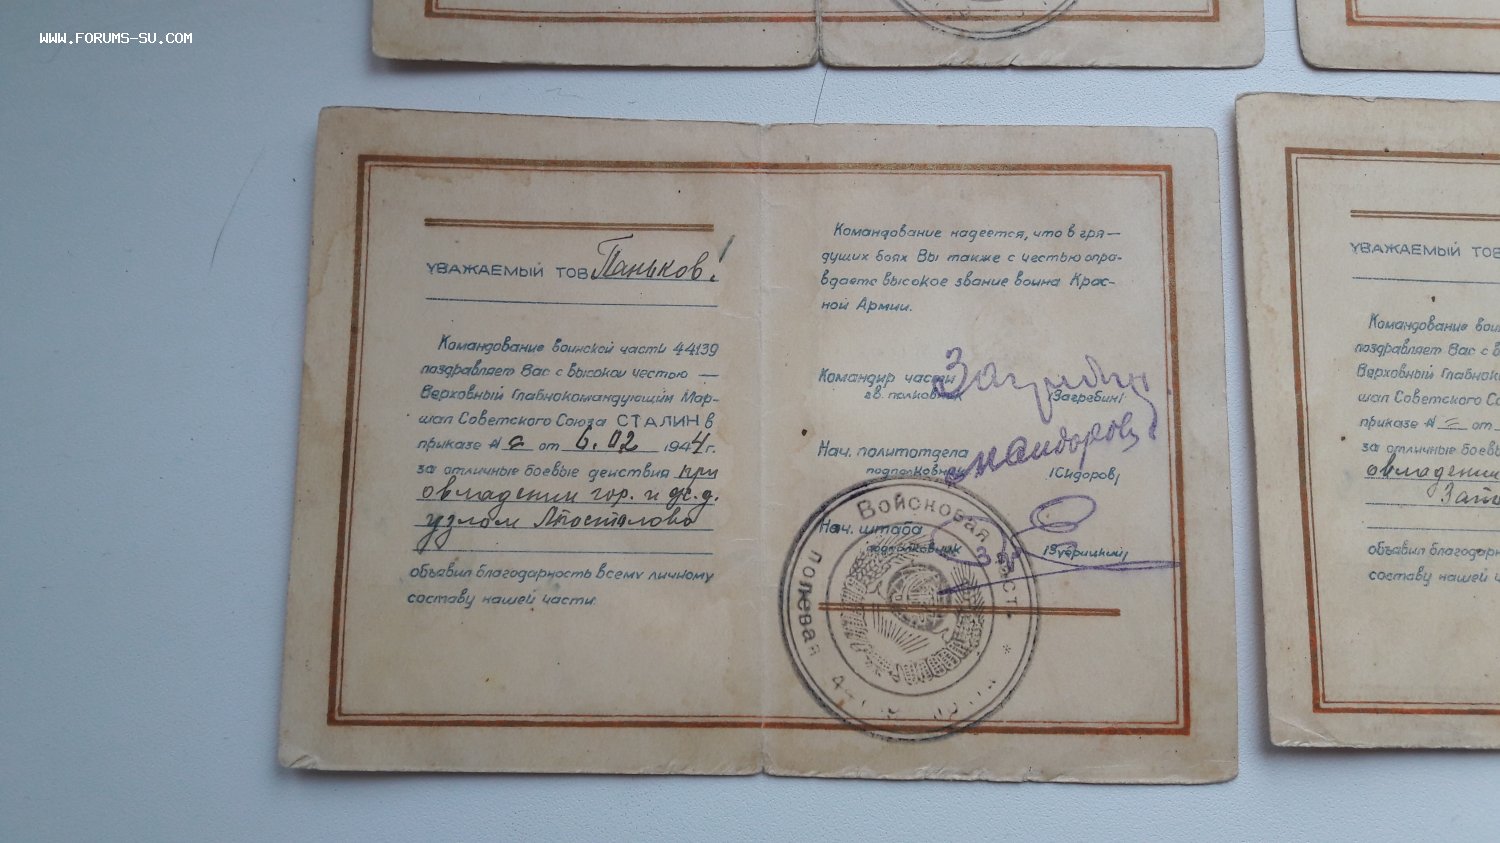 WWW.FORUMS-SU.COM
УВАЖАЕМЫЙ ТОВ Паньков!
Командование воинской части 44139
поздравляет Вас с высокой честью —
Верховный Главнокомандующий Мар-
шал Советского Союза СТАЛИН в
приказе № = от 6.02 1944 г.
за отличные боевые действия при
овладении гор. и ж.д.
узлом Апостолово
объявил благодарность всему личному
составу нашей части
Командование надеется, что в гря-
дущих боях Вы также с честью опра-
вдаете высокое звание воина Крас-
ной Армии.
Командир части
гв. полковник /Загребин/
Нач. политотдела
подполковник /Сидоров/
Нач. штаба
подполковник /Зубрицкий/
Войсковая часть * Полевая
УВАЖАЕМЫЙ ТОВ
Командование вои
поздравляет Вас с в
Верховный Главноко
шал Советского Со
приказе № = от
за отличные боевы
овладении
Запо
объявил благодарн
составу нашей ч